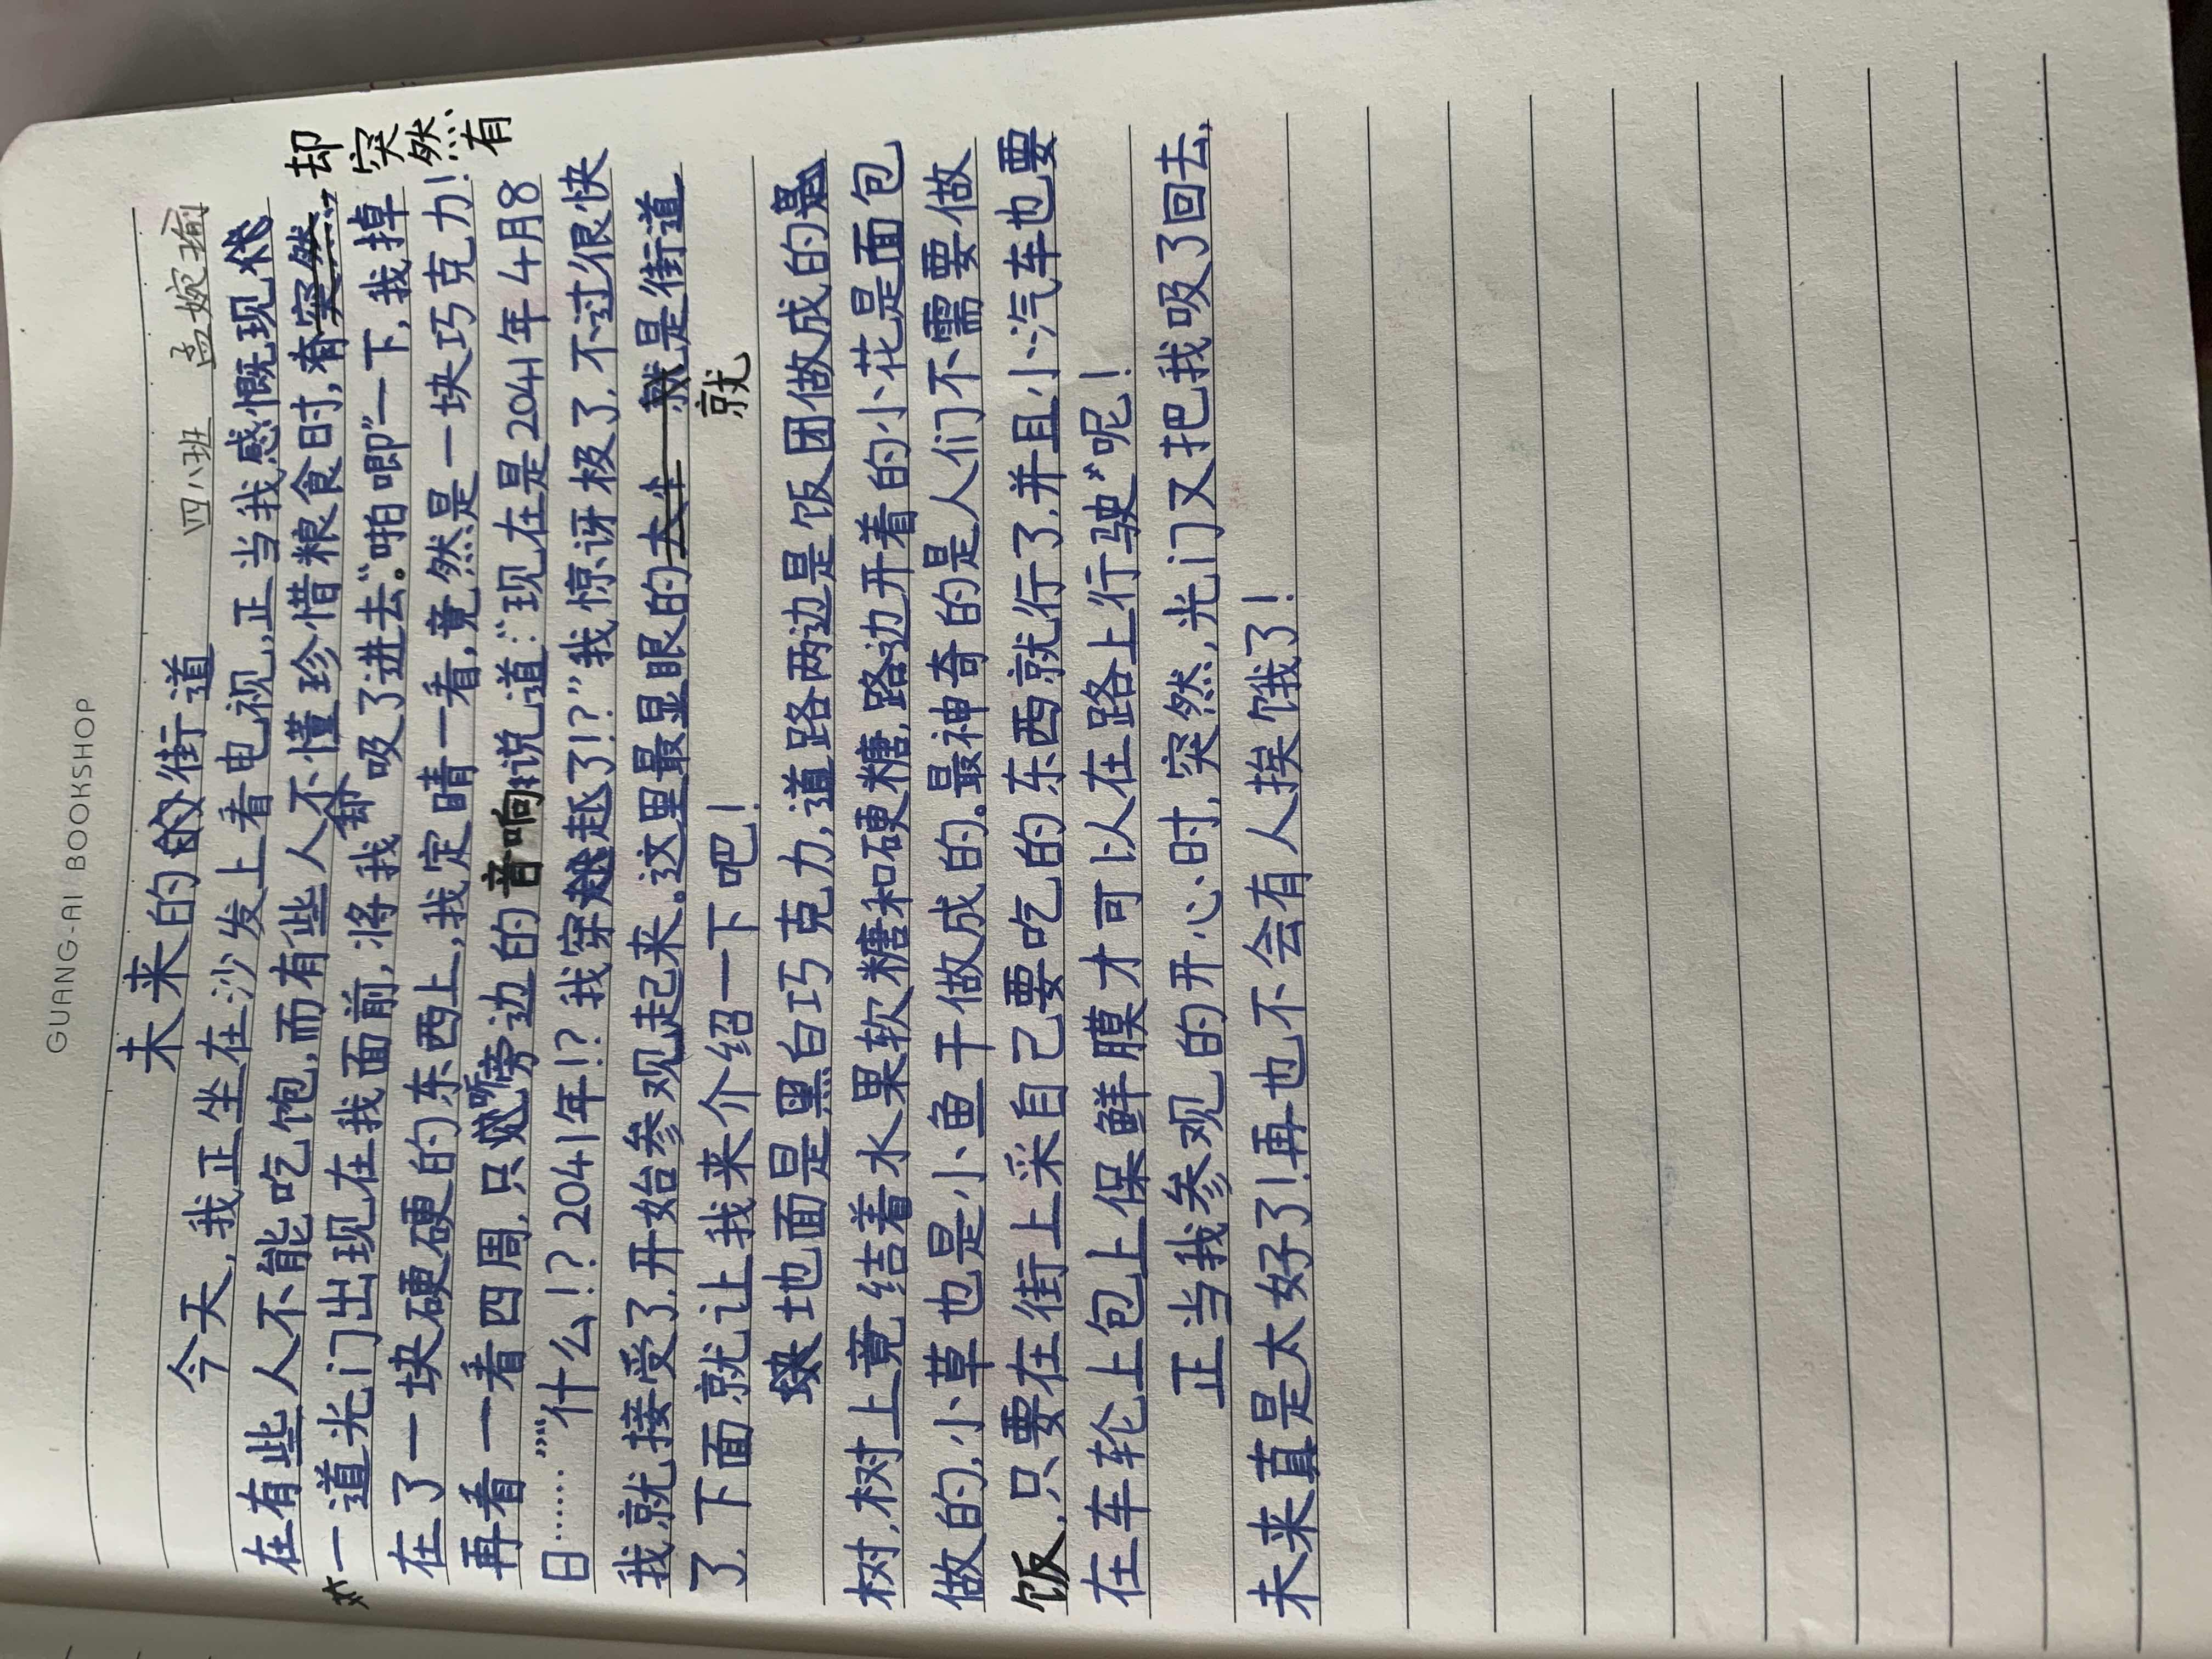 GUANG-AI BOOKSHOP
未来的街道
四八班 孟婉瑜
今天,我正坐在沙发上看电视,正当我感慨现代
在有些人不能吃饱,而有些人不懂珍惜粮食时,却突然有
一道光门出现在我面前,将我吸了进去。“啪唧”一下,我掉
在了一块硬硬的东西上,我定睛一看,竟然是一块巧克力!
再看一看四周,只听旁边的音响说道:“现在是2041年4月8
日……”“什么!?2041年!?我穿越了!?”我惊讶极了,不过很快
我就接受了,开始参观起来。这里最显眼的就是街道
了,下面就让我来介绍一下吧!
地面是黑白巧克力,道路两边是饭团做成的
树,树上竟结着水果软糖和硬糖,路边开着的小花是面包
做的,小草也是小鱼干做成的。最神奇的是人们不需要做
饭,只要在街上采自己要吃的东西就行了,并且小汽车也要
在车轮上包上保鲜膜才可以在路上行驶”呢!
正当我参观的开心时,突然,光门又把我吸了回去,
未来真是太好了!再也不会有人挨饿了!